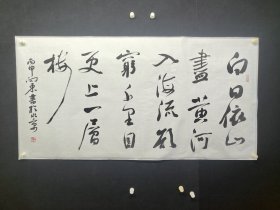 白日依山
盡黄河
入海流欲
窮千里目
更上一層
樓
丙申向東書於北京